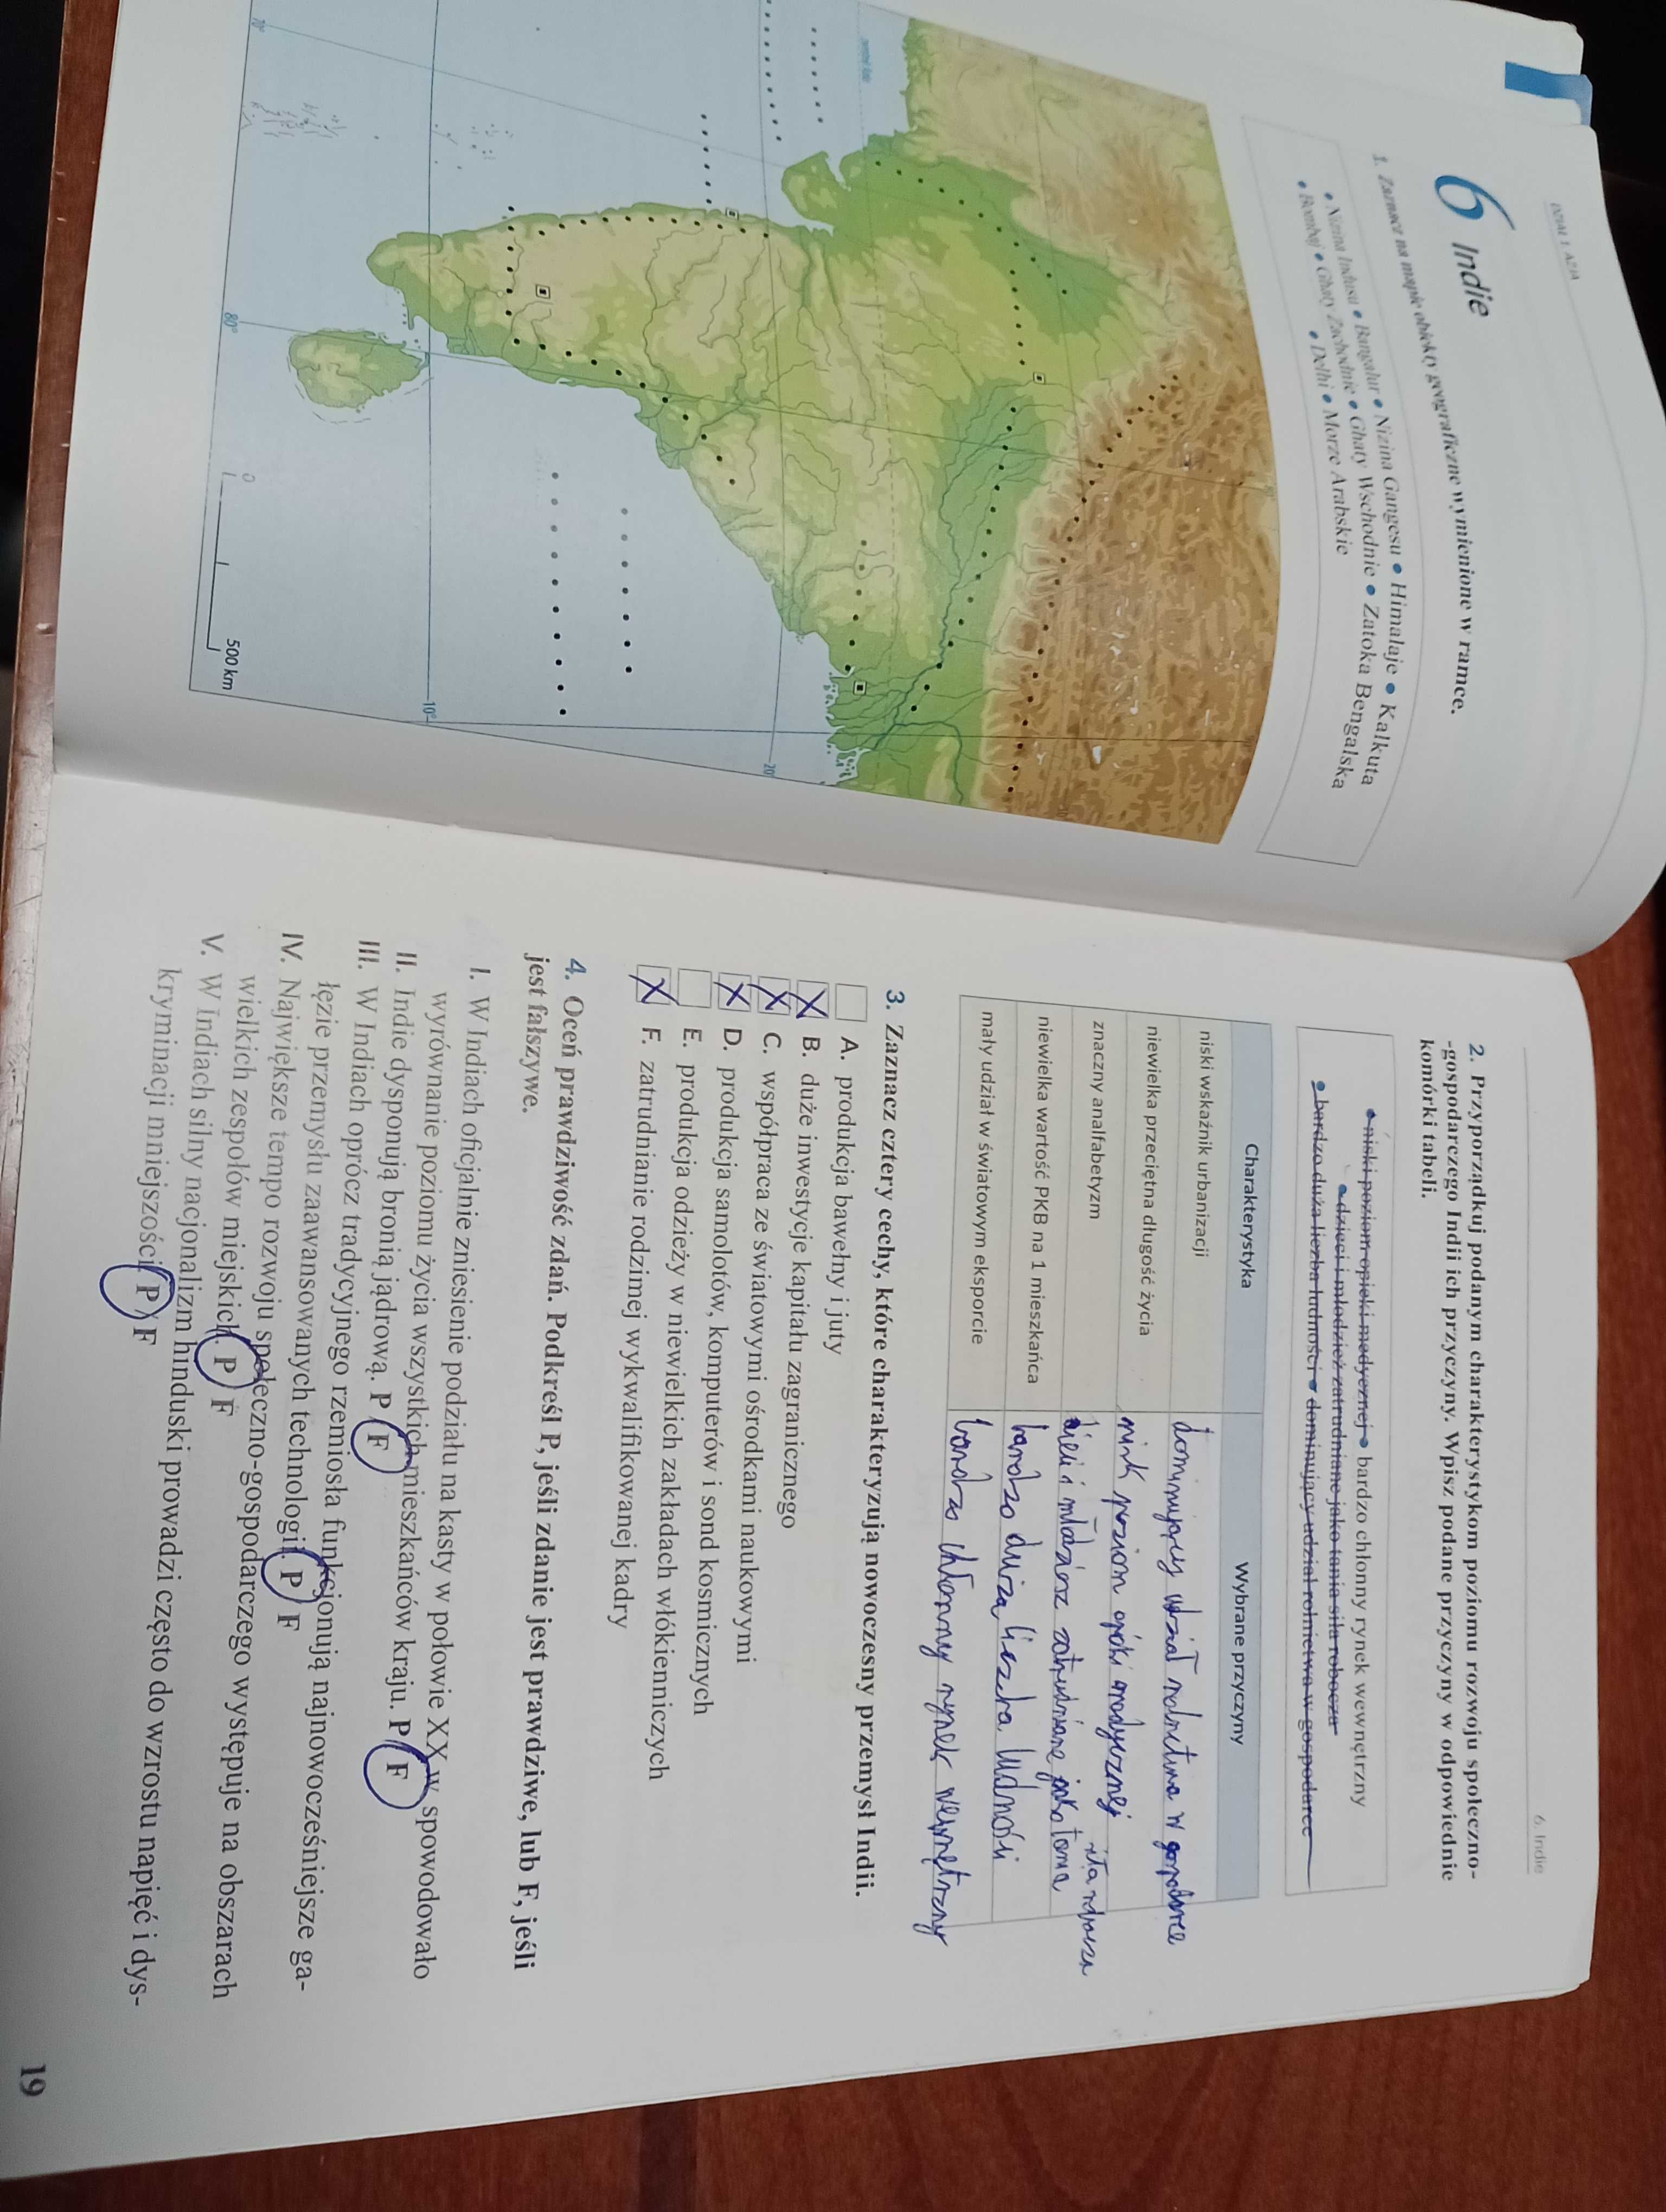 DZIAŁ 1. AZJA
6 Indie
1. Zaznacz na mapie obiekty geograficzne wymienione w ramce.
• Nizina Indusu • Bangalur • Nizina Gangesu • Himalaje • Kalkuta
• Bombaj • Ghaty Zachodnie • Ghaty Wschodnie • Zatoka Bengalska
• Delhi • Morze Arabskie
70°
80°
10°
20°
0
500 km
6. Indie
2. Przyporządkuj podanym charakterystykom poziomu rozwoju społeczno-
-gospodarczego Indii ich przyczyny. Wpisz podane przyczyny w odpowiednie
komórki tabeli.
• niski poziom opieki medycznej • bardzo chłonny rynek wewnętrzny
• dzieci i młodzież zatrudniane jako tania siła robocza
• bardzo duża liczba ludności • dominujący udział rolnictwa w gospodarce
Charakterystyka Wybrane przyczyny
niski wskaźnik urbanizacji dominujący udział rolnictwa w gospodarce
niewielka przeciętna długość życia poziom medycznej
znaczny analfabetyzm dzieci i młodzież zatrudniane jako tania siła robocza
niewielka wartość PKB na 1 mieszkańca bardzo duża liczba ludności
mały udział w światowym eksporcie chłonny rynek wewnętrzny
3. Zaznacz cztery cechy, które charakteryzują nowoczesny przemysł Indii.
A. produkcja bawełny i juty
X B. duże inwestycje kapitału zagranicznego
X C. współpraca ze światowymi ośrodkami naukowymi
X D. produkcja samolotów, komputerów i sond kosmicznych
E. produkcja odzieży w niewielkich zakładach włókienniczych
X F. zatrudnianie rodzimej wykwalifikowanej kadry
4. Oceń prawdziwość zdań. Podkreśl P, jeśli zdanie jest prawdziwe, lub F, jeśli
jest fałszywe.
I. W Indiach oficjalnie zniesienie podziału na kasty w połowie XX w. spowodowało
wyrównanie poziomu życia wszystkich mieszkańców kraju. P / F
II. Indie dysponują bronią jądrową. P / F
III. W Indiach oprócz tradycyjnego rzemiosła funkcjonują najnowocześniejsze ga-
łęzie przemysłu zaawansowanych technologii. P / F
IV. Największe tempo rozwoju społeczno-gospodarczego występuje na obszarach
wielkich zespołów miejskich. P / F
V. W Indiach silny nacjonalizm hinduski prowadzi często do wzrostu napięć i dys-
kryminacji mniejszości. P / F
19